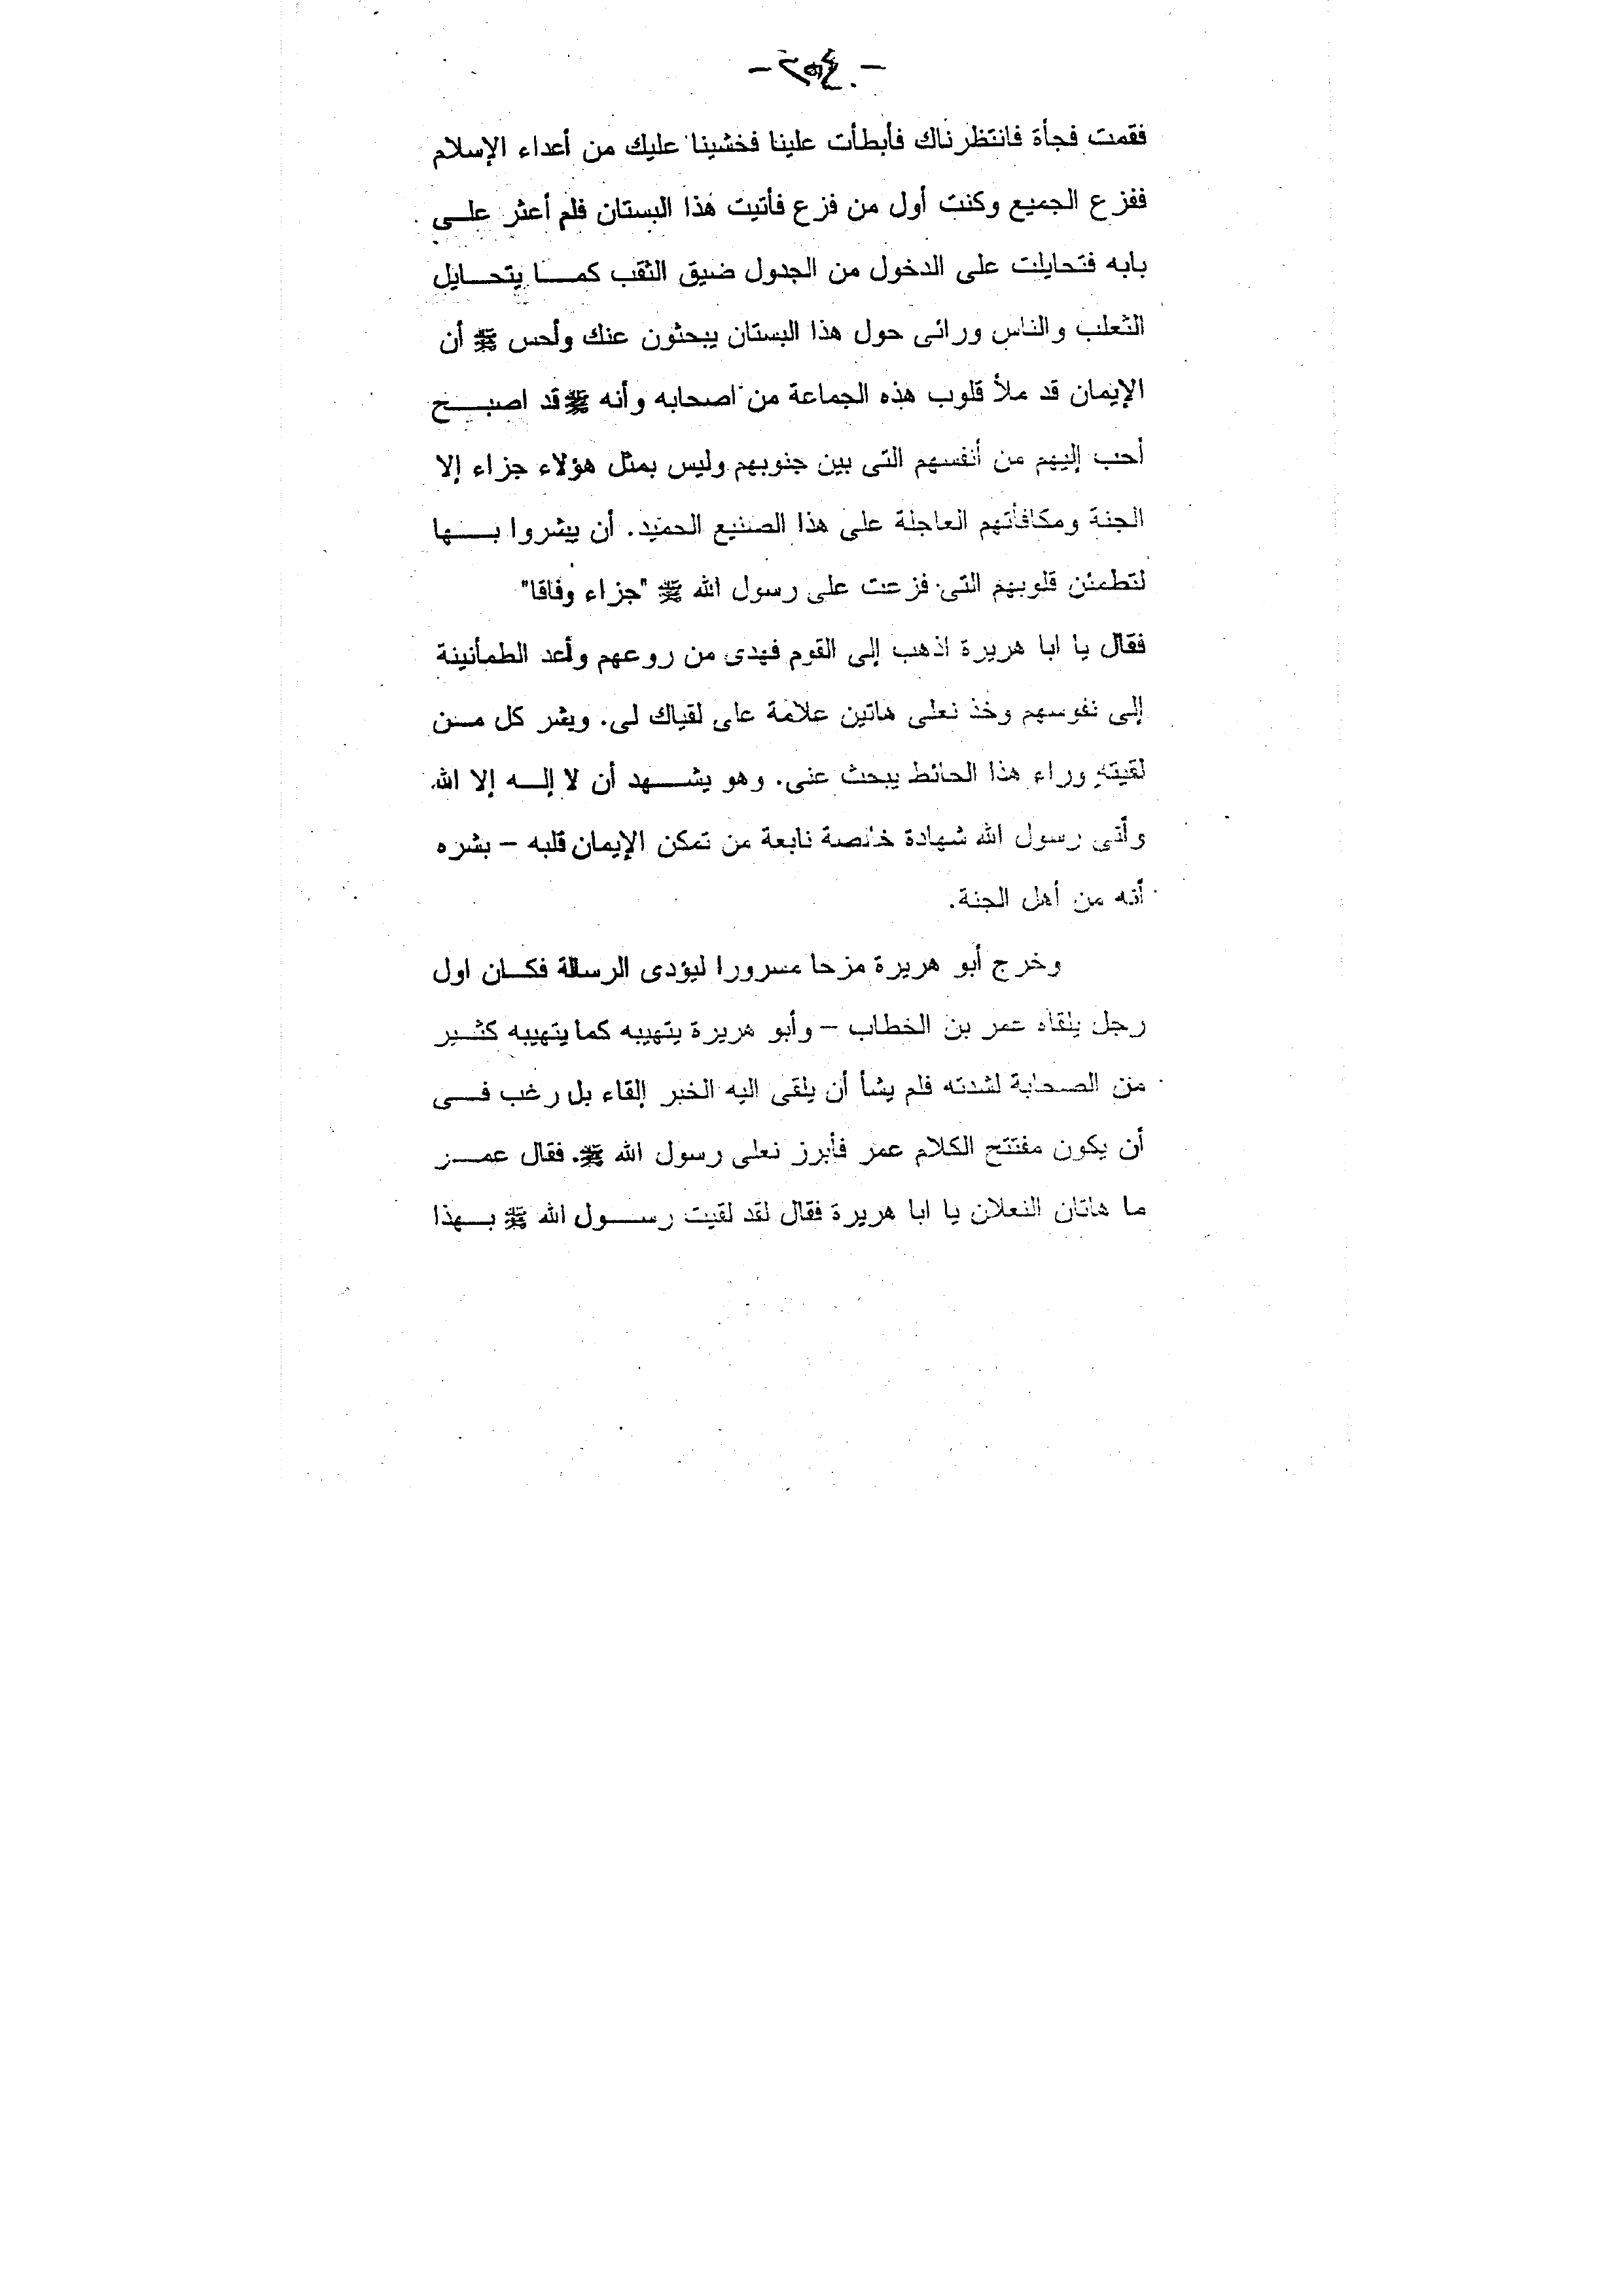 - ٢٥٤ -
فقمت فجأة فانتظرناك فأبطأت علينا فخشينا عليك من أعداء الإسلام
ففزع الجميع وكنت أول من فزع فأتيت هذا البستان فلم أعثر علـى
بابه فتحايلت على الدخول من الجدول ضيق الثقب كمـــا يتحـــايل
الثعلب والناس ورائى حول هذا البستان يبحثون عنك وأحس ﷺ أن
الإيمان قد ملأ قلوب هذه الجماعة من اصحابه وأنه ﷺ قد اصبـــح
أحب إليهم من أنفسهم التى بين جنوبهم وليس بمثل هؤلاء جزاء إلا
الجنة ومكافأتهم العاجلة على هذا الصنيع الحميد. أن يبشروا بـــها
لتطمئن قلوبهم التى فزعت على رسول الله ﷺ "جزاء وفاقا"
فقال يا ابا هريرة اذهب إلى القوم فهدى من روعهم وأعد الطمأنينة
إلى نفوسهم وخذ نعلى هاتين علامة على لقياك لى. وبشر كل مـــن
لقيته وراء هذا الحائط يبحث عنى. وهو يشـــهد أن لا إلـــه إلا الله
وأنى رسول الله شهادة خالصة نابعة من تمكن الإيمان قلبه - بشره
أنه من أهل الجنة.
وخرج أبو هريرة مزحا مسرورا ليؤدى الرسالة فكـــان اول
رجل يلقاه عمر بن الخطاب - وأبو هريرة يتهيبه كما يتهيبه كثـــير
من الصحابة لشدته فلم يشأ أن يلقى اليه الخبر إلقاء بل رغب فـــى
أن يكون مفتتح الكلام عمر فأبرز نعلى رسول الله ﷺ. فقال عمـــر
ما هاتان النعلان يا ابا هريرة فقال لقد لقيت رســـول الله ﷺ بـــهذا